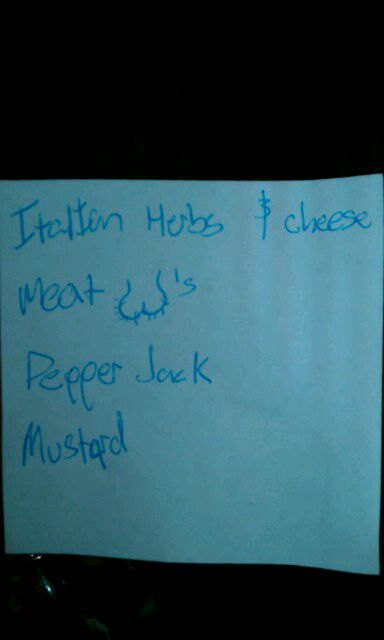 Italien Herbs & cheese
Meat 's
Pepper Jack
Mustard